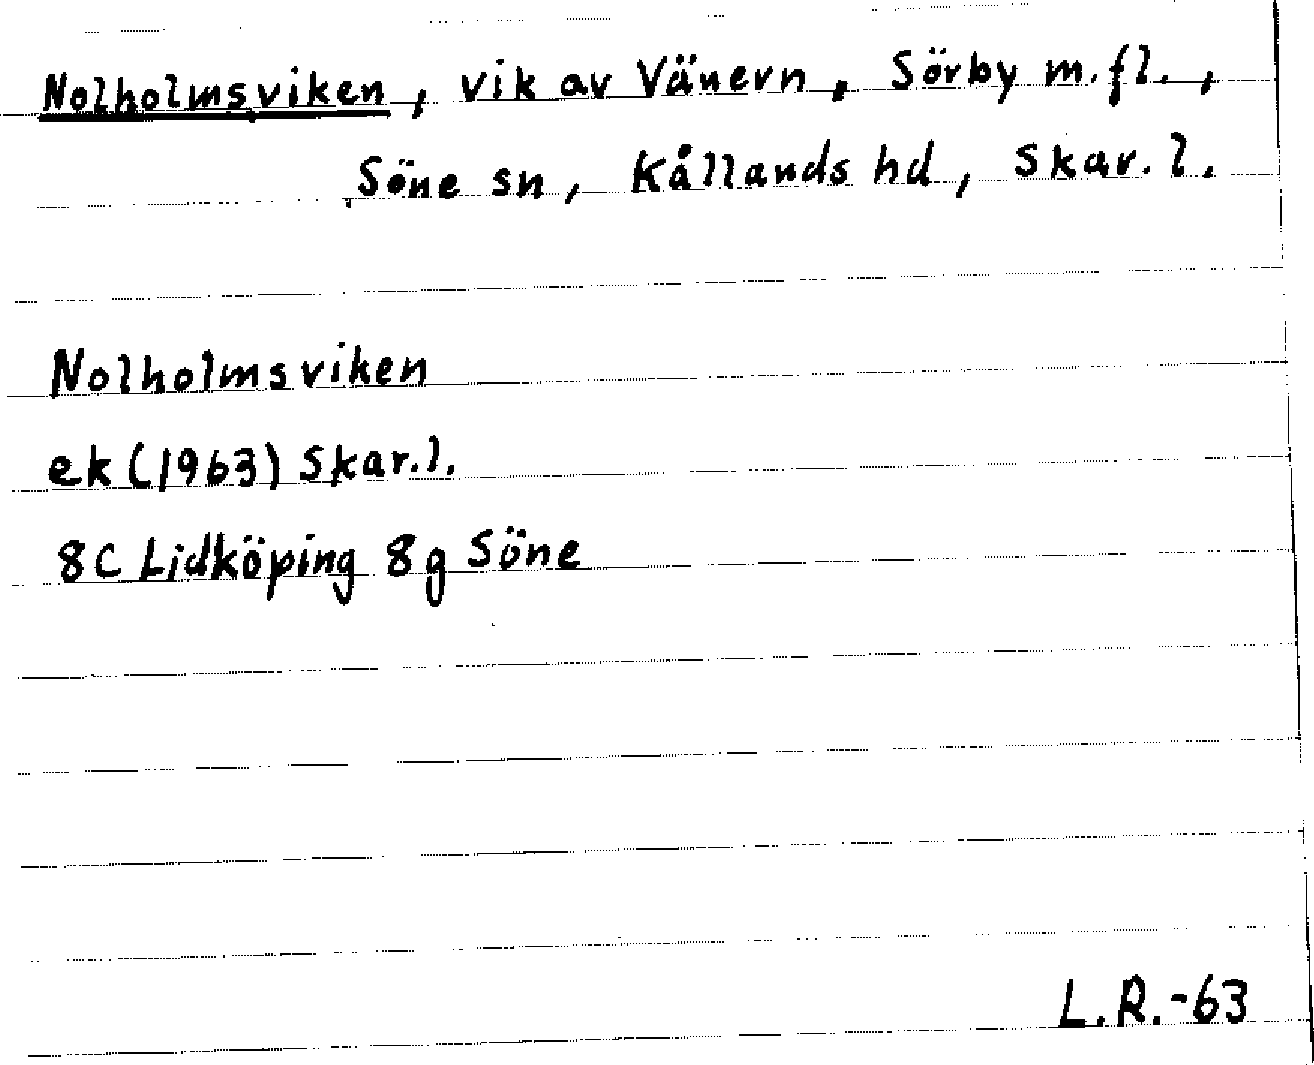 Nolholmsviken, vik av Vänern, Sörby m.fl.,
Söne sn, Kållands hd, Skar. l.
Nolholmsviken
ek (1963) Skar. l.
8C Lidköping 8g Söne
L.R.-63